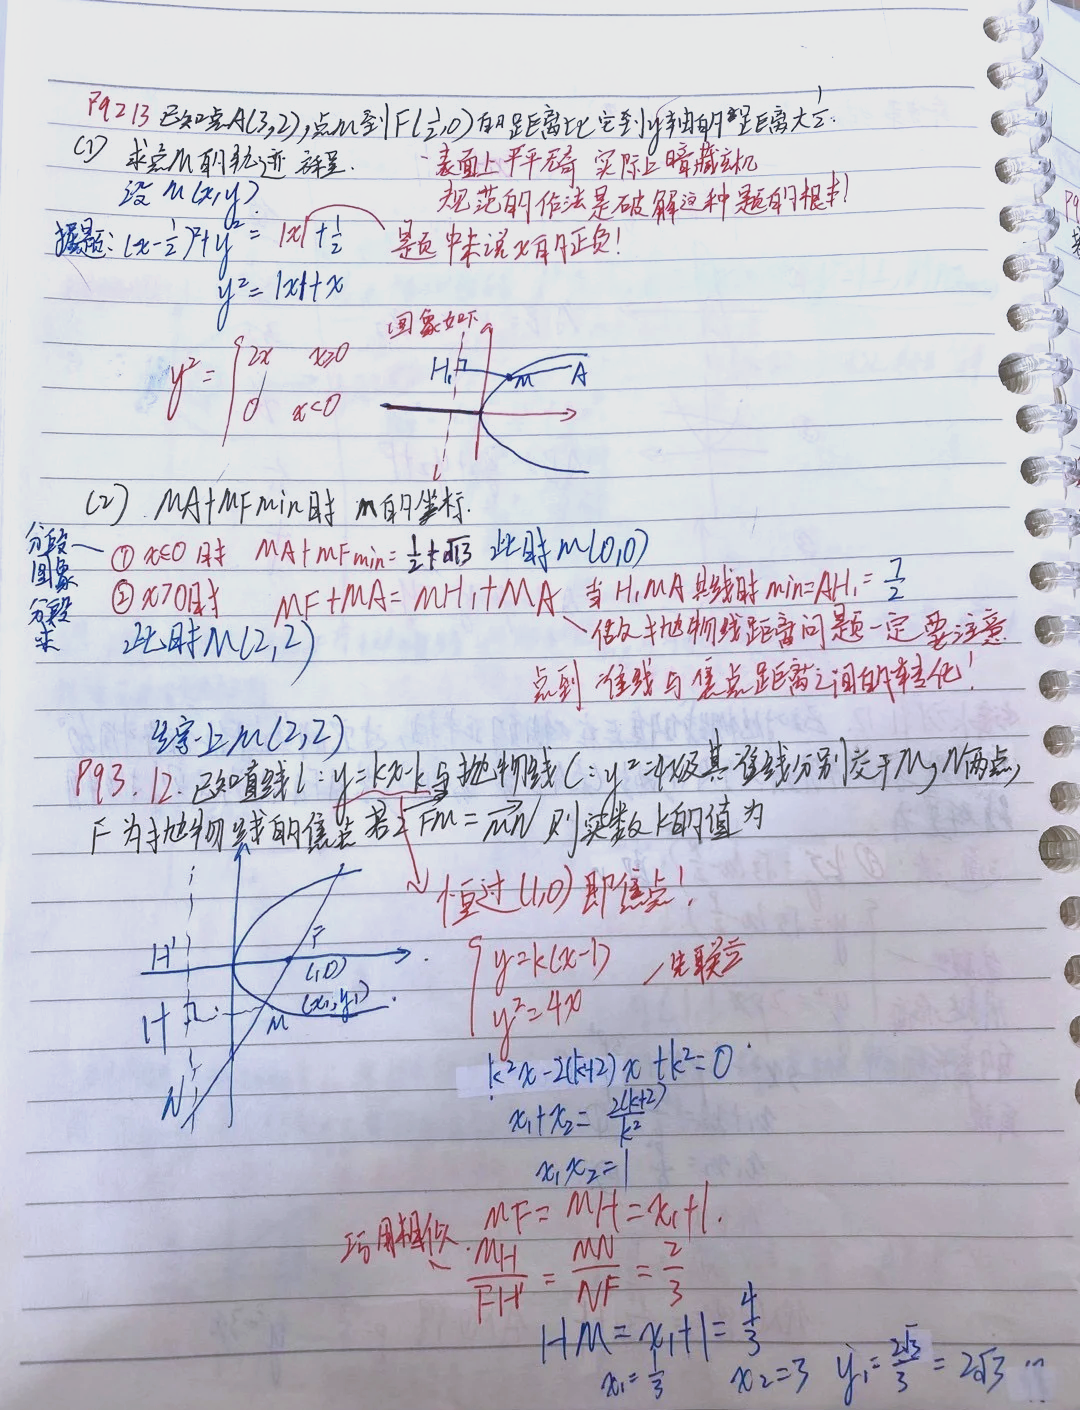 P92 13 已知点A(3,2),点M到F(½,0)的距离比它到y轴的距离大½.
(1) 求点M的轨迹方程.
·表面上平平无奇 实际上暗藏玄机
设M(x,y)
规范的作法是破解这种题的根本!
据题: (x-½)²+y² = |x|+½
是题中未说x的正负!
y²=|x|+x
图象如下
y² = { 2x x≥0
0 x<0
H₁ M A
l
(2). MA+MF min时 M的坐标.
分段图象分段求
① x≤0时 MA+MFmin=½+√13 此时M(0,0)
② x>0时 MF+MA=MH₁+MA 当H₁MA共线时min=AH₁=7/2
此时M(2,2)
做及抛物线距离问题一定要注意
点到准线与焦点距离之间的转化!
综上M(2,2)
P93.12.已知直线l:y=kx-k与抛物线C:y²=4x及其准线分别交于M,N两点,
F为抛物线的焦点 若2FM=MN 则实数k的值为
恒过(1,0)即焦点!
H' F
(1,0)
(x₁,y₁)
H M
N
{ y=k(x-1)
y²=4x
先联立
k²x-2(k+2)x+k²=0
x₁+x₂=2(k+2)/k²
x₁x₂=1
巧用相似
MF=MH=x₁+1.
MH/FH' = MN/NF = 2/3
HM=x₁+1=4/3
x₁=1/3 x₂=3 y₁=2√3/3 = 2√3